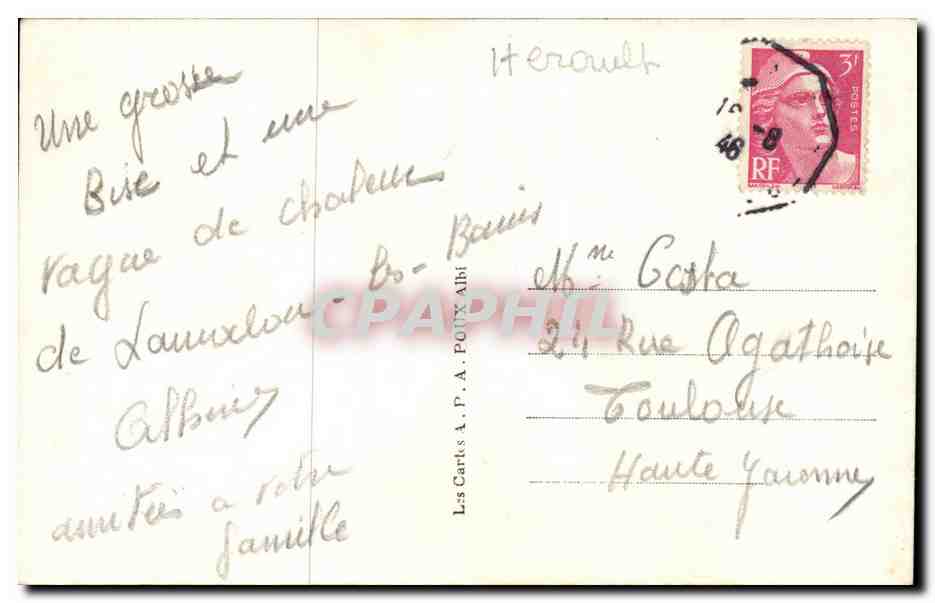 Herault
Une grosse
Bise et une
vague de chaleur
de Lamalou-les-Bains
amitiés a votre
famille
3F
POSTES
RF
46
-8
Les Cartes A.P.A. POUX Albi
Mme Costa
24 Rue Agathoise
Toulouse
Haute Garonne
CPAPHIL